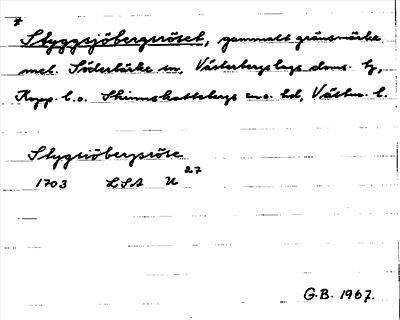 *
Styggsjöbergsröset, gammalt gränsmärke
mel. Söderbärke sn, Västerbergslags doms. tg,
Kopp. l. o. Skinnskattebergs sn o. hd, Västm. l.
Stygsiöbergsröse
1703 LSA U 27
G.B. 1967.